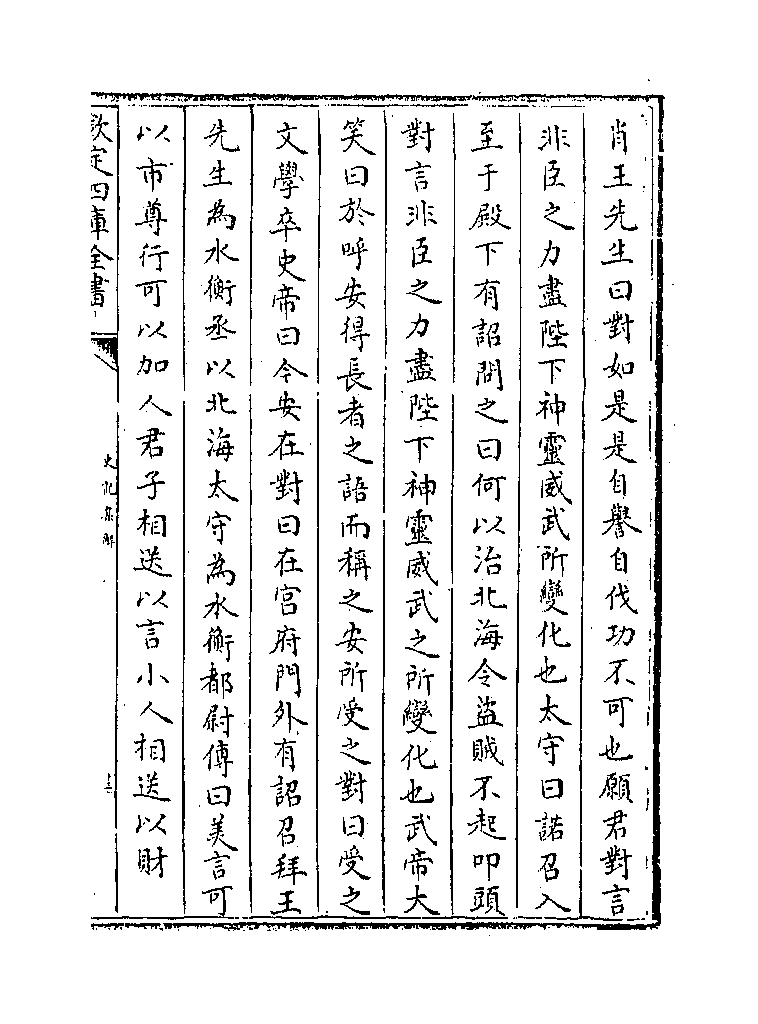 肖王先生曰對如是是自譽自伐功不可也願君對言
非臣之力盡陛下神靈威武所變化也太守曰諾召入
至于殿下有詔問之曰何以治北海令盜賊不起叩頭
對言非臣之力盡陛下神靈威武之所變化也武帝大
笑曰於呼安得長者之語而稱之安所受之對曰受之
文學卒史帝曰今安在對曰在宮府門外有詔召拜王
先生為水衡丞以北海太守為水衡都尉傳曰美言可
以市尊行可以加人君子相送以言小人相送以財
欽定四庫全書
史記集解